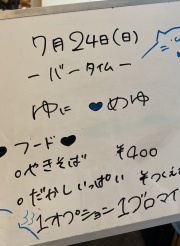 7月24日(日)
ーバータイムー
ゆに♥めゆ
フード♥
○やきそば ¥400
○だがしいっぱい ¥つくえ
1オプション1ブロマイ